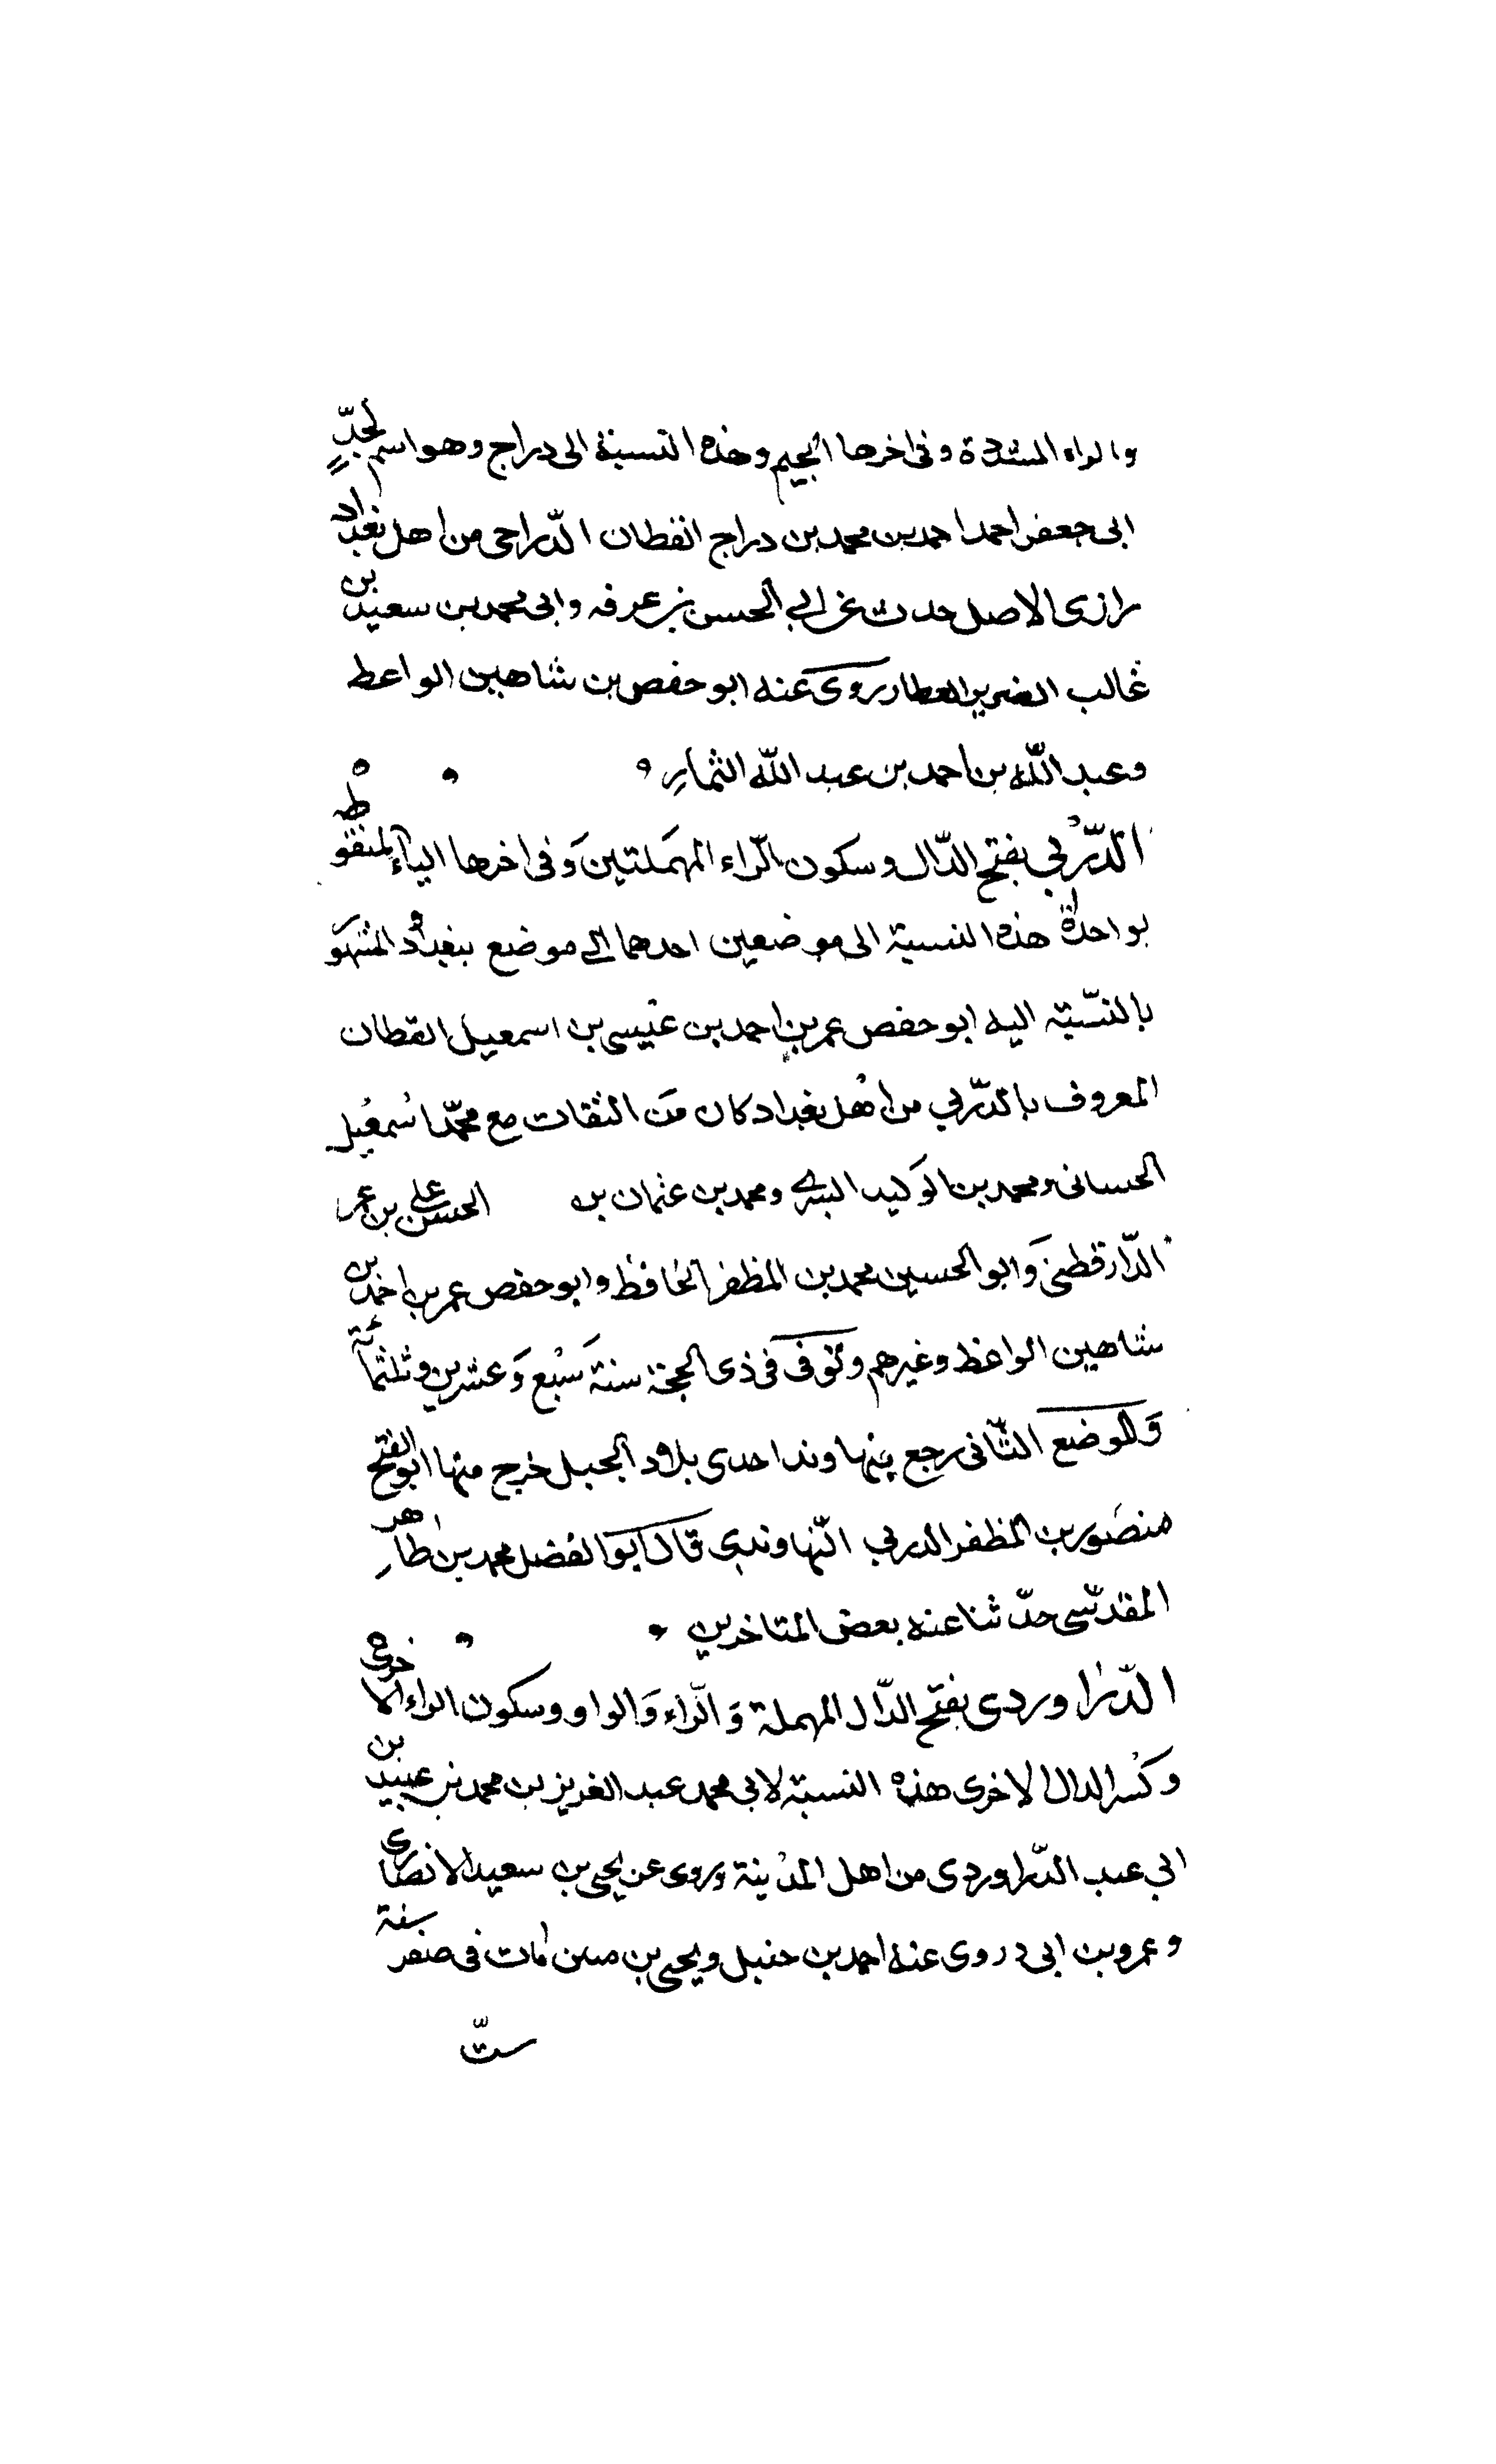 والراء المشددة وفي اخرها الجيم وهذه النسبة الى دراج وهو اسم لجدّ
ابى جعفر احمد احمد بن محمد بن دراج القطان الدّراجى من اهل بغداد
رازى الاصل حدث عن ابي الحسن بن عرفه وابى محمد بن سعيد بن
غالب الضرير العطار روى عنه ابو حفص بن شاهين الواعظ
وعبد اللّه بن احمد بن عبد اللّه الثمار
الدّرْبي بفتح الدّال وسكون الرّاء المهملتين وفى اخرها الياء المنقوطه
بواحدة هذه النسبة الى موضعين احدهما الى موضع ببغداد المشهور
بالنسّبته اليه ابو حفص عمر بن احمد بن عيسى بن اسمعيل القطان
المعروف بالدّربي من اهل بغداد كان من الثقات مع محمّد اسمعيل
الحسانى ومحمد بن الوليد البسرى ومحمد بن عثمان بن الحسن على بن عمر
الدّارقطنى وابو الحسين محمد بن المظفر الحافظ وابو حفص عمر بن احمد بن
شاهين الواعظ وغيرهم وتوفى فى ذى الحجة سنة سبع وعشرين وثلثمائة
والموضع الثّانى رجع بنهاوند احدى بلاد الجبل خرج منها ابو الفتح
منصور بن المظفر الدربي النّهاوندى قال ابو الفضل محمد بن طاهر
المقدسّى حدّثنا عنه بعض المتاخرين
الدّراوردى بفتح الدّال المهملة والرّاء والواو وسكون الراء الاخرى
وكسر الدال الاخرى هذه النسبته لابى محمد عبد العزيز بن محمد بن عبيد بن
ابي عبيد الدّراوردى من اهل المدينة يروى عن يحيى بن سعيد الانصارى
وعمرو بن ابى د روى عنه احمد بن حنبل ويحيى بن معين مات فى صفر سنة
ستّ